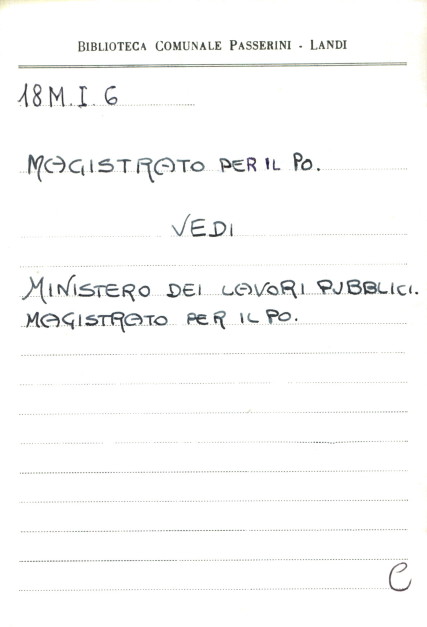 BIBLIOTECA COMUNALE PASSERINI - LANDI
18 M.I.6
MAGISTRATO PER IL PO.
VEDI
MINISTERO DEI LAVORI PUBBLICI.
MAGISTRATO PER IL PO.
C